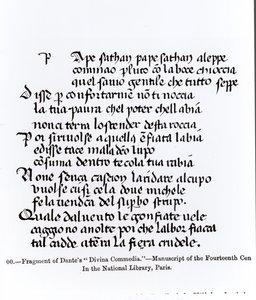 P Ape sathan pape sathan aleppe
cominao pluto cō la boce chioccia
quel savio gentile che tutto seppe
Disse p confortarme non ti noccia
la tua paura chel poter chell abiā
non ci terra loscender desta roccia
Poi si rivolse a quella ēfiata labia
e disse tace maladeto lupo
cōsuma dentro te cola tua rabia
None senza casion landare alcupo
vuolse cusi cela dove michele
fe la vendeta del supbo strupo
Quale dal vento le gonfiate vele
caggono avolte poi che lalbor fiaca
tal cadde aterra la fiera crudele.
60.—Fragment of Dante's "Divina Commedia."—Manuscript of the Fourteenth Cen
In the National Library, Paris.